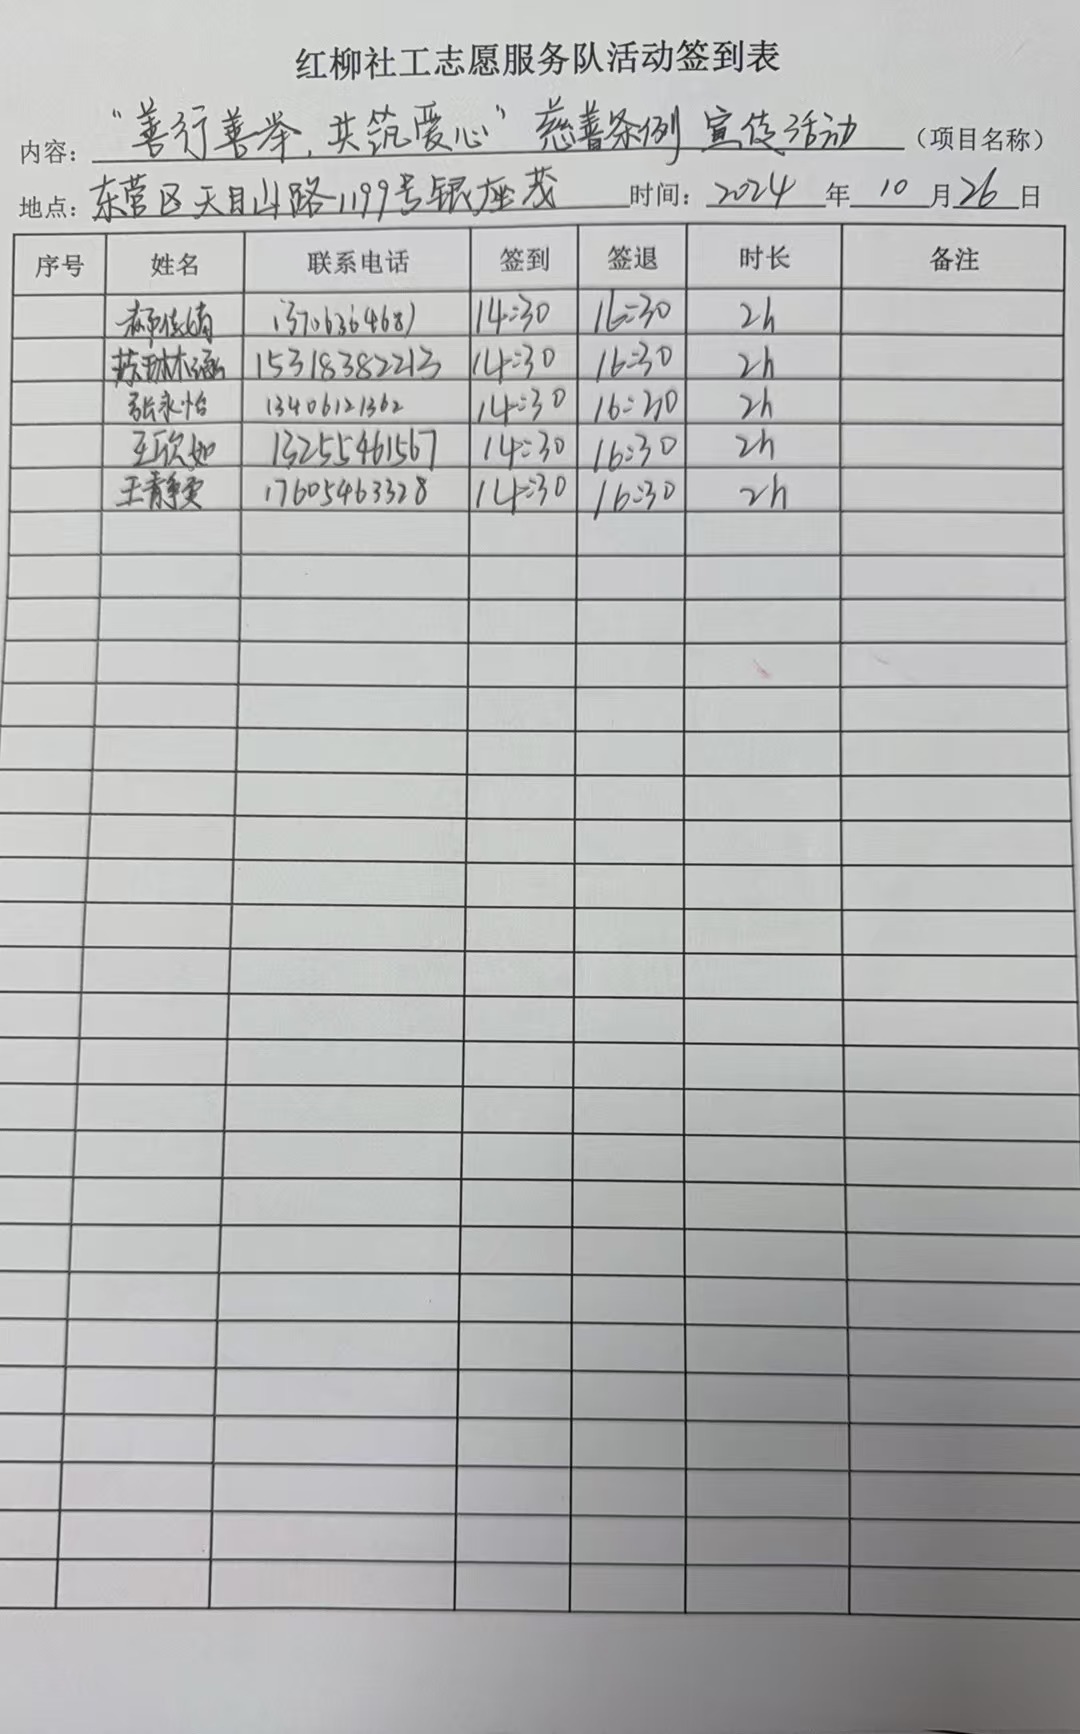 红柳社工志愿服务队活动签到表
内容：“善行善举，共筑爱心”慈善条例宣传活动（项目名称）
地点：东营区天目山路1199号银座茂 时间：2024年10月26日
序号 姓名 联系电话 签到 签退 时长 备注
郝佳婧 13706364681 14:30 16:30 2h
陈琳涵 15318382213 14:30 16:30 2h
张永怡 13406121362 14:30 16:30 2h
王欣如 13255461567 14:30 16:30 2h
王静雯 17605463328 14:30 16:30 2h